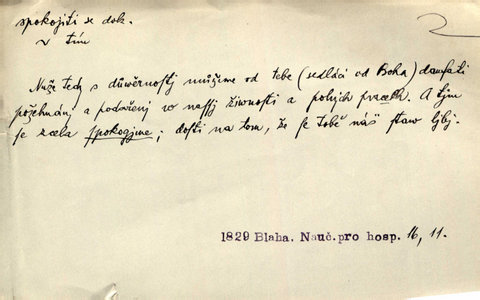 spokojiti se dok.
v tím
Nuže tedy s důwěrnostj můžeme od tebe (sedláci od Boha) daufati
požehnánj a podařenj w nassj žiwnosti a polnjch pracech. A tjm
se zcela spokogjme; dosti na tom, že se Tobě náš staw ljbj.
1829 Blaha. Nauč. pro hosp. 16, 11.